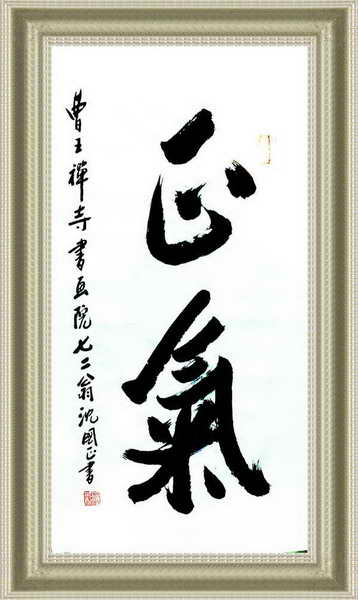 正氣
曹王禅寺書画院七二翁沈國正書